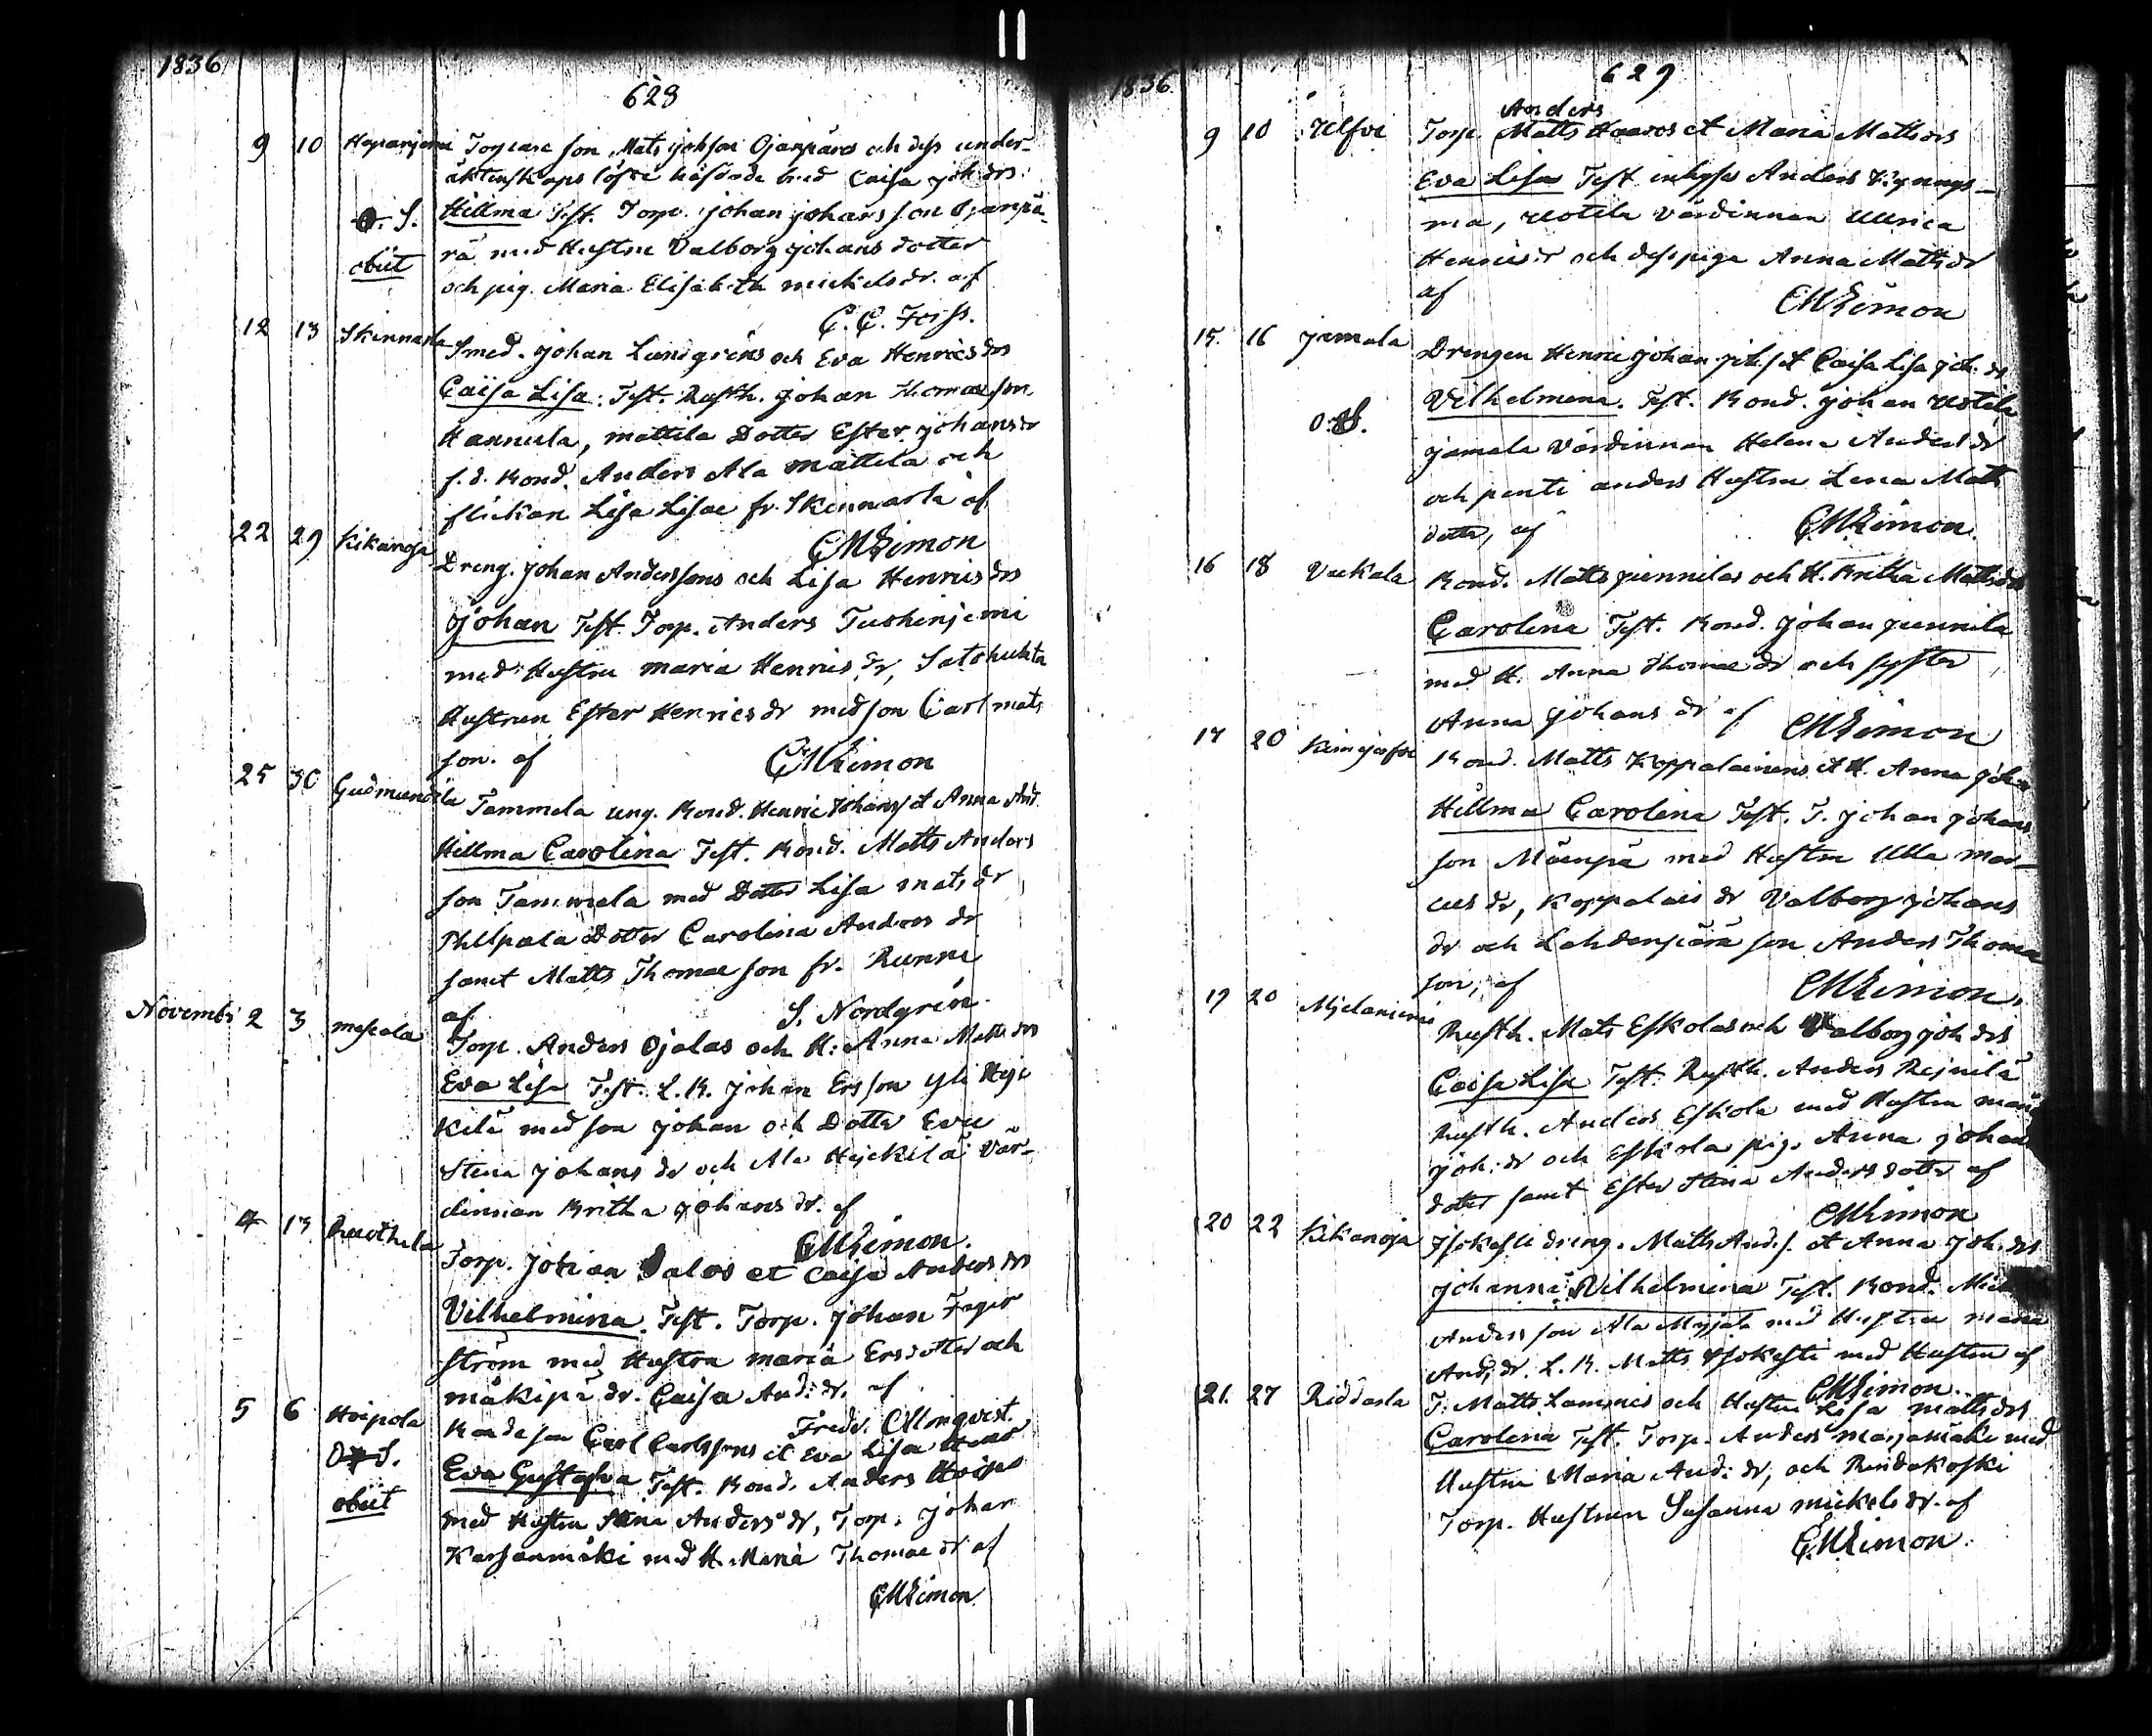 1836
628
9 10 Torpare son Mats joh son Ojanpäras och dess under
äktenskaps löfte häfdade brud Caisa joh drs
O. S. Hillma Test. Torp. johan johans son Ojanpä-
obiit rä med Hustru Valborg johans dotter
och pig. Maria Elisabeth mickels dr. af
C. C. Forss.
12 13 Skinnarla Smed. johan Lundgrens och Eva Henrics drs
Caisa Lisa. Test. Rusth. johan Thomae son
Hannula, mattila Dotter Ester johans dr
f. d. Bond. Anders Ala mattila och
flickan Lisa Lisae fr. Skinnarla af
CMLimon
22 29 Kikanoja Dreng. johan Anderssons och Lisa Henrics drs
johan Test. Torp. Anders
med Hustru maria Henrics dr, Satohuhta
Hustrun Ester Henrics dr med son Carl mats
son. af CMLimon
25 30 Gudmundila Tammela ung. Bond. Henric Johans s et Anna And.
Hillma Carolina Test. Bond. Matts Anders
son Tammela med Dotter Lisa mats dr
Phllpala Dotter Carolina Anders dr
samt Matts Thomae son fr. Runni
af S. Nordgrén.
Novembr 2 3 mascala Torp. Anders Ojalas och H: Anna Matts drs
Eva Lisa Test. L. B. johan Ersson Yli Heic
kilä med son johan och Dotter Eva
Stina johans dr och Ala Heickilä Vär-
dinnan Britha johans dr. af
CMLimon.
4 13 Ruothula Torp. johan Salos et Caisa Anders drs
Vilhelmina. Test. Torp. johan Fager
ström med Hustru maria Ersdotter och
mäkipä dr. Caisa And: dr. af
Fredr. Almqvist.
5 6 Hoipola Bonde son Carl Carlssons et Eva Lisa
O. S. Eva Gustafva Test. Bond. Anders Hoip
obiit med Hustru Stina Anders dr, Torp. johan
Karsanmäki med H. Maria Thomae dr af
CMLimon.
1836
629
Anders
9 10 Ulfve Torp. Matts Haavos et Maria Matts drs
Eva Lisa Test inhyses Anders
ma, Uotila värdinnan Ullrica
Henrics dr och dess piga Anna Matts dr
af CMLimon
15 16 jamala Drengen Henric johan joh. s et Caisa Lisa joh. dr
Vilhelmina. Test. Bond. johan Uotila
O. S. jamala värdinnan Helena Anders dr
och penti anders Hustru Lena Mats
dotter, af CMLimon.
16 18 Vuckala Bond. Matts junnilas och H. Britha Matts drs
Carolina Test. Bond. johan junnila
med H. Anna Thomae dr och syster
Anna johans dr af CMLimon
17 20 Bond. Matts Koppalainens et H. Anna joh
Hillma Carolina Test. T. johan johans
son Mäenpä med Hustru Ulla mar-
cus dr, Koppalais dr Valborg johans
dr och Lahdenperä son Anders Thomae
son, af CMLimon.
19 20 Rusth. Mats Eskolas och Valborg joh drs
Caisa Lisa Test. Rusth. Anders Rejnilä
Rusth. Anders Eskola med Hustru maria
joh: dr och Eskola pig. Anna johans
dotter samt Ester Stina Anders dotter af
CMLimon
20 22 Kikanoja dreng. Matts And. s. et Anna joh. drs
johanna Vilhelmina Test. Bond. Mic
Anders son Ala med Hustru maria
And: dr. L. B. Matts med Hustru af
CMLimon.
21. 27 Riddarla T. Matts Lammis och Hustru Lisa matts drs
Carolina Test. Torp. Anders marjamäki med
Hustru Maria And: dr, och Rindakoski
Torp. Hustrun Susanna mickels dr. af
CMLimon.